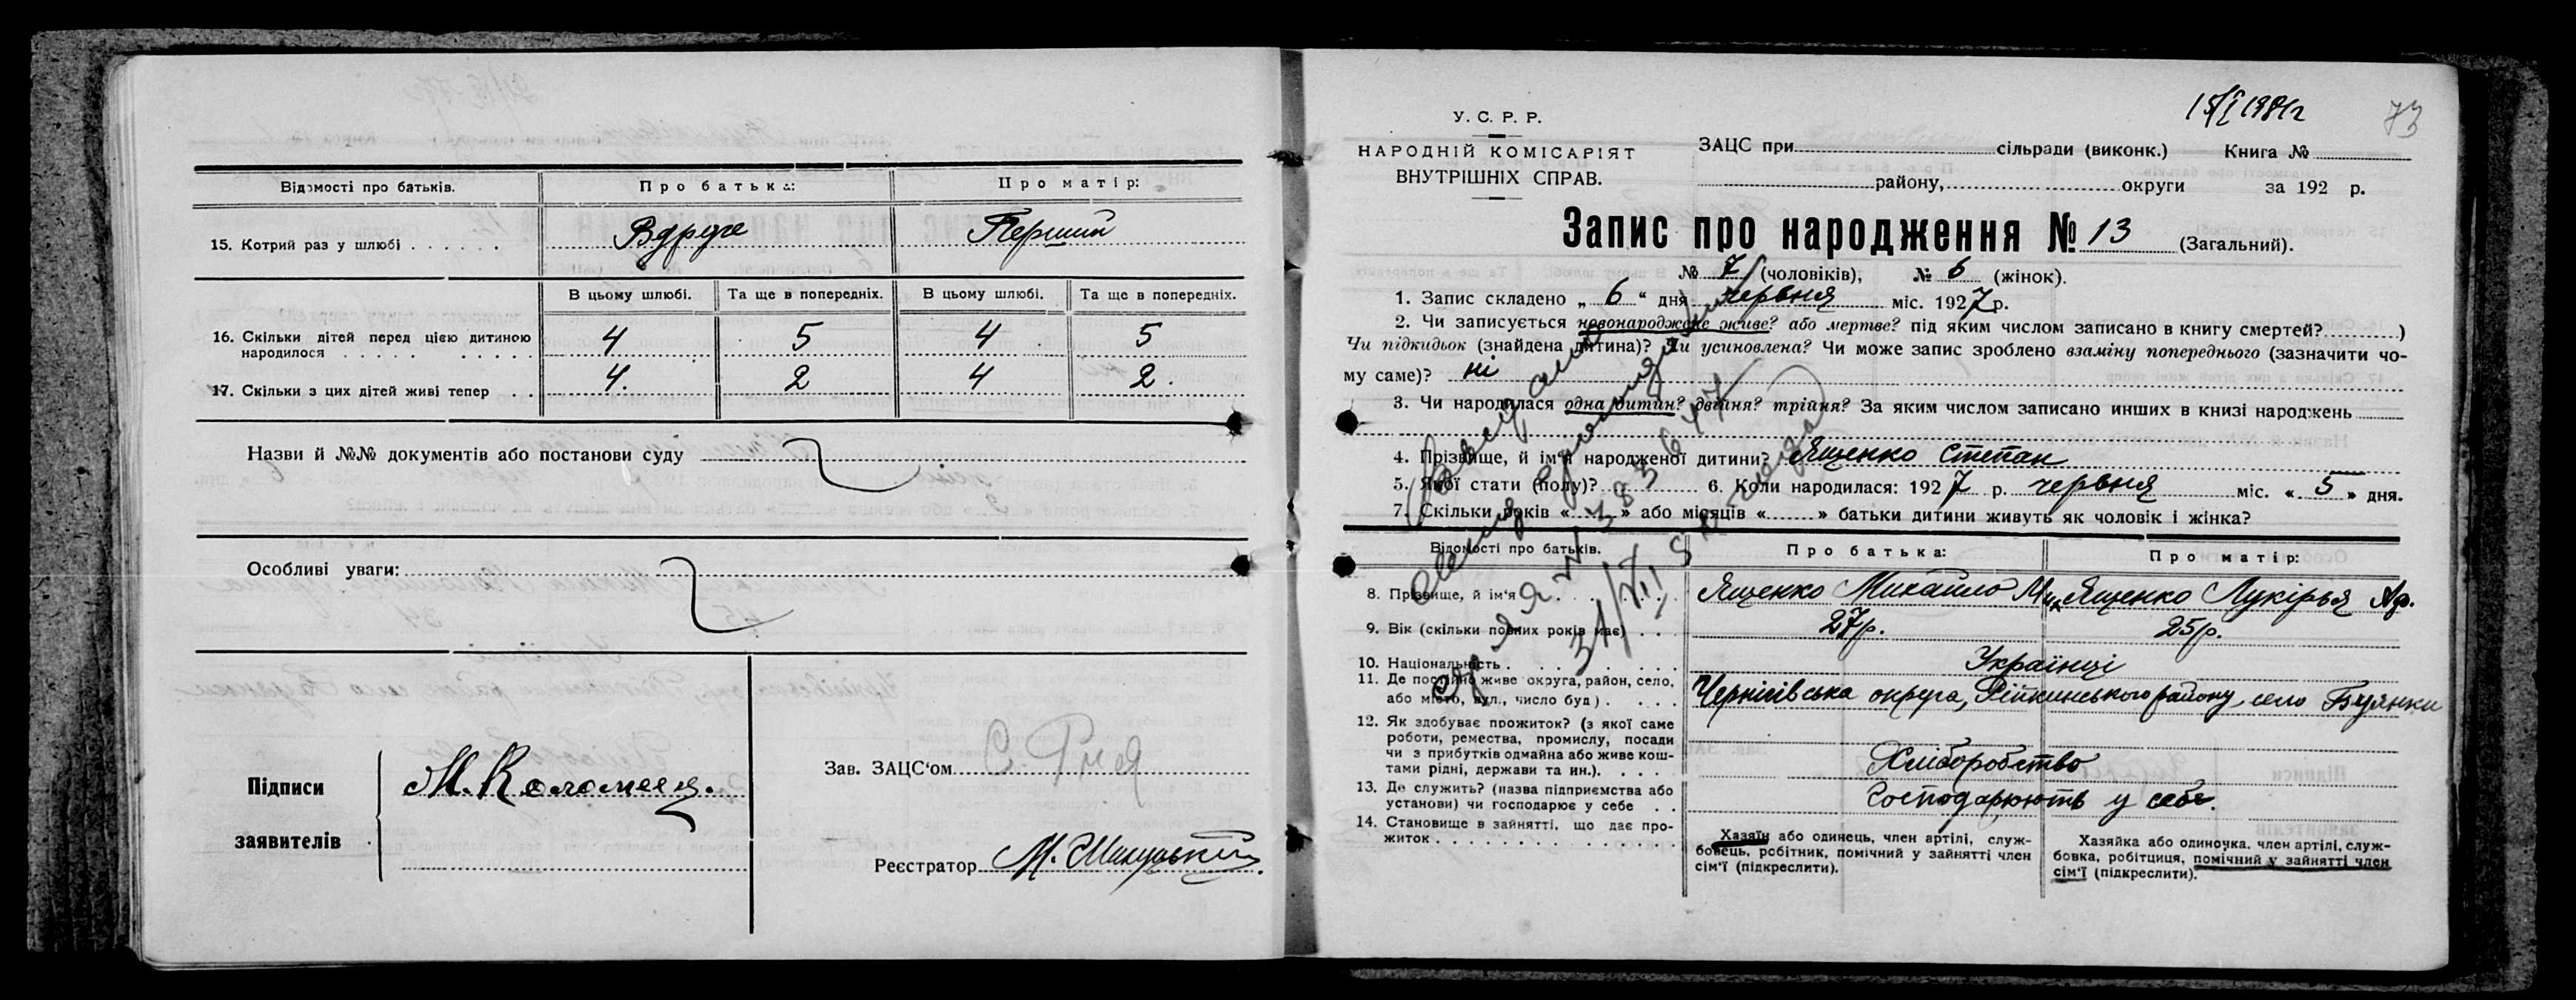 Відомості про батьків. Про батька: Про матір:
15. Котрий раз у шлюбі Вдруге Перший
В цьому шлюбі. Та ще в попередніх. В цьому шлюбі. Та ще в попередніх.
16. Скільки дітей перед цією дитиною
народилося 4 5 4 5
17. Скільки з цих дітей живі тепер 4. 2 4 2.
Назви й №№ документів або постанови суду
Особливі уваги:
Підписи
заявителів
М. Коломеец.
Зав. ЗАЦС'ом
Реєстратор М.
73
У. С. Р. Р.
НАРОДНІЙ КОМІСАРІЯТ
ВНУТРІШНІХ СПРАВ.
ЗАЦС при сільради (виконк.) Книга №
району, округи за 192 р.
Запис про народження № 13 (Загальний).
№ 7 (чоловіків), № 6 (жінок).
1. Запис складено „ 6 “ дня червня міс. 1927 р.
2. Чи записується новонароджене живе? або мертве? під яким числом записано в книгу смертей? )
Чи підкидьок (знайдена дитина)? Чи усиновлена? Чи може запис зроблено взаміну попереднього (зазначити чо-
му саме)? ні
3. Чи народилася одна дитин? двійня? трійня? За яким числом записано инших в книзі народжень
4. Прізвище, й ім'я народженої дитини? Ященко Степан
5. Якої стати (полу)? 6. Коли народилася: 1927 р. червня міс. « 5 » дня.
7. Скільки років « » або місяців « » батьки дитини живуть як чоловік і жінка?
Відомості про батьків. Про батька: Про матір:
8. Прізвище, й ім'я Ященко Михайло Мих Ященко Лукірья Аф.
9. Вік (скільки повних років має) 27р. 25р.
10. Національність Українці
11. Де постійно живе округа, район, село,
або місто, вул., число буд). Чернігівська округа, Ріпкинського району село Буянки
12. Як здобуває прожиток? (з якої саме
роботи, ремества, промислу, посади
чи з прибутків одмайна або живе кош-
тами рідні, держави та ин.). Хліборобство
13. Де служить? (назва підприємства або
установи) чи господарює у себе Господарюють у себе.
14. Становище в зайнятті, що дає про-
житок
Хазяїн або одинець, член артілі, служ-
бовець, робітник, помічний у зайнятті член
сім'ї (підкреслити).
Хазяйка або одиночка, член артілі, служ-
бовка, робітниця, помічний у зайнятті член
сім'ї (підкреслити).